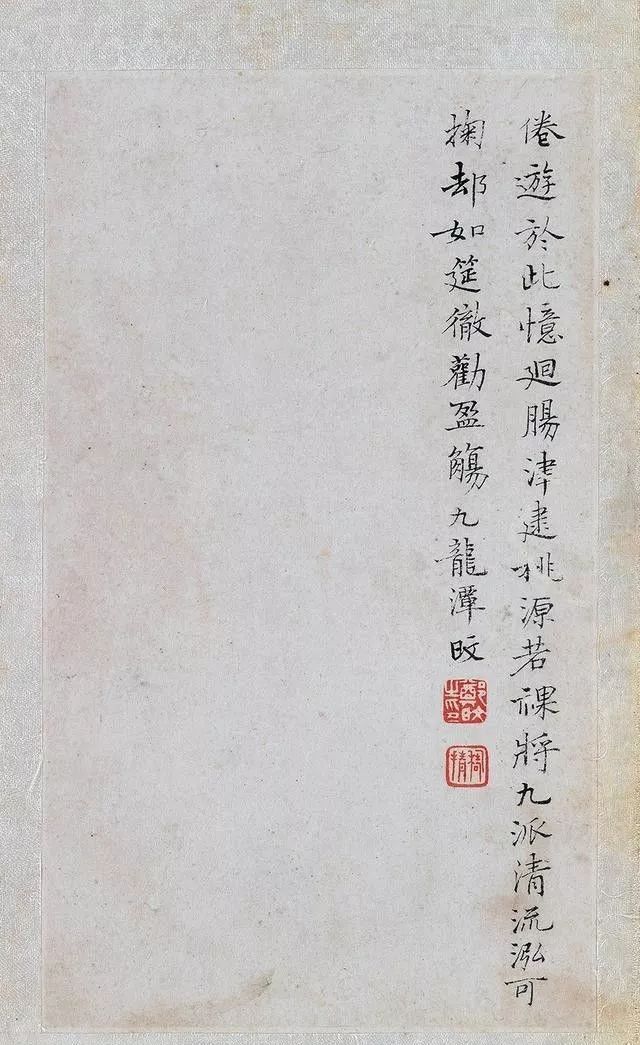 倦遊於此憶廻腸津逮桃源若祼將九派清流泓可
掬却如筵徹勸盈觴九龍潭旼